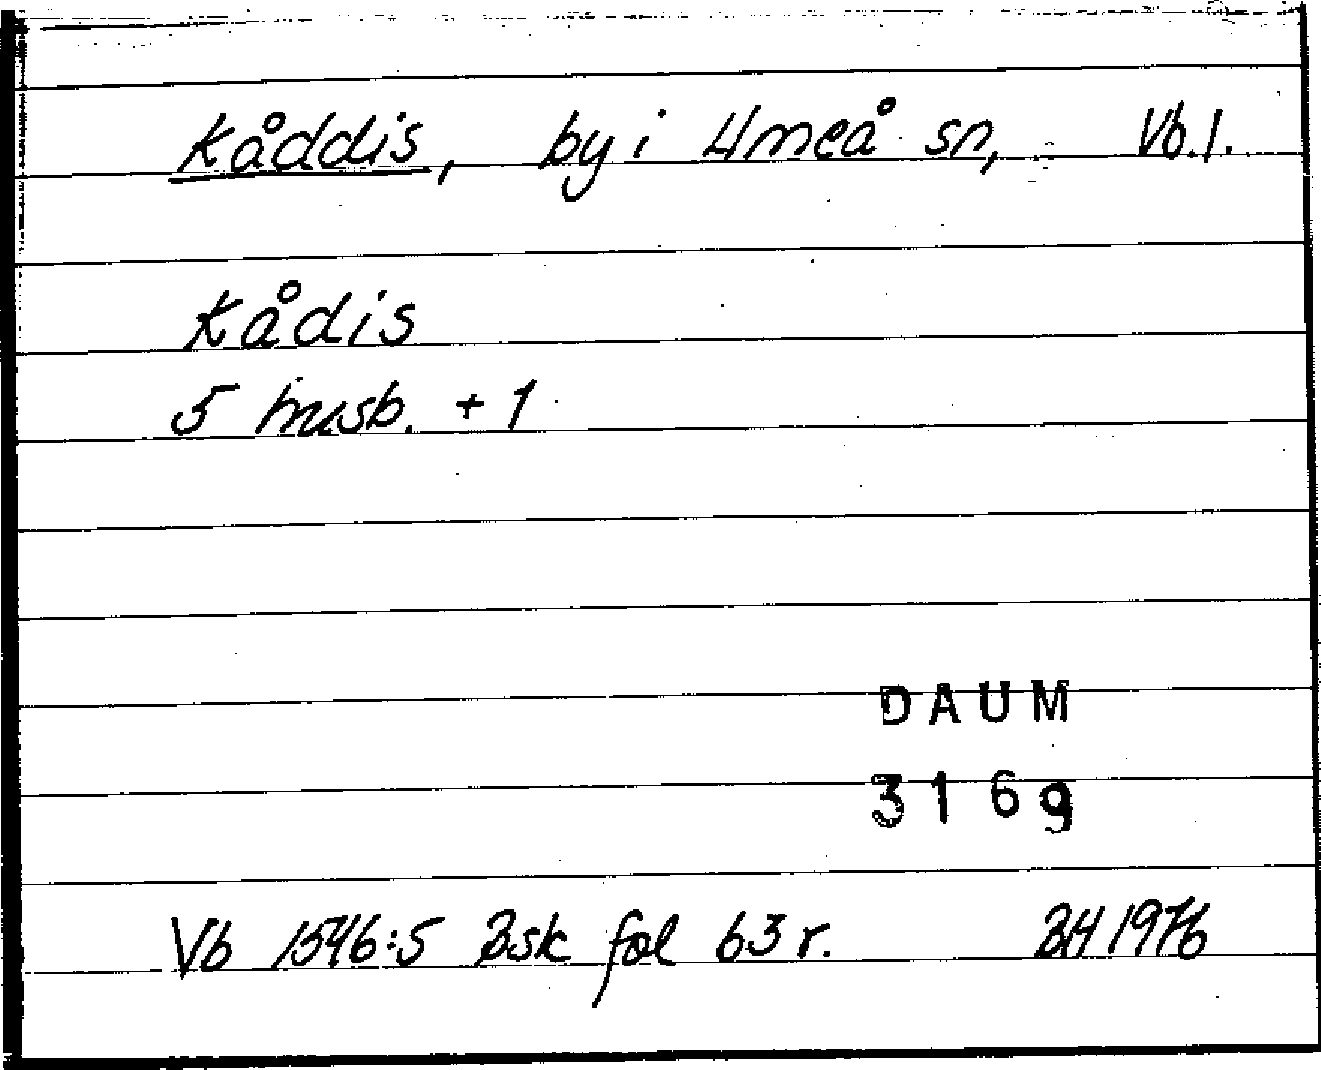 Kåddis, by i Umeå sn, Vb. l.
Kådis
5 husb. + 1
DAUM
3169
Vb 1546:5 Bsk fol 63 r. BH 1976